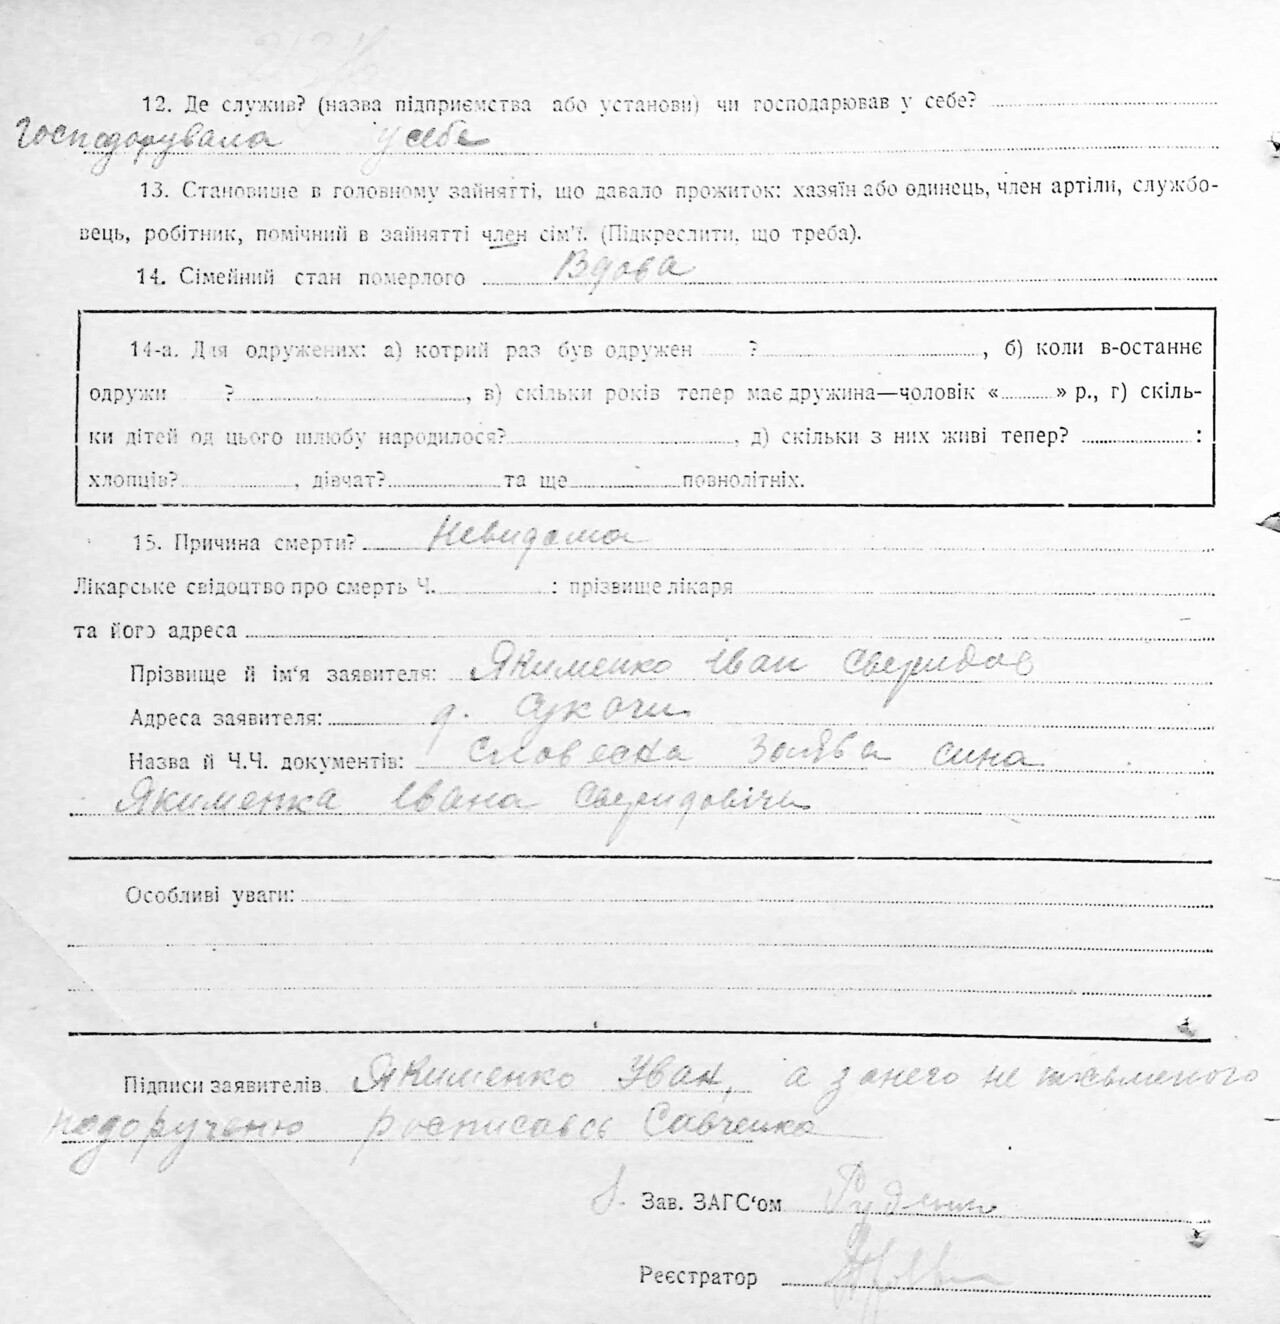 12. Де служив? (назва підприємства або установи) чи господарював у себе?
Господорувала у себе
13. Становище в головному зайнятті, що давало прожиток: хазяїн або одинець, член артіли, службо-
вець, робітник, помічний в зайнятті член сім'ї. (Підкреслити, що треба).
14. Сімейний стан померлого Вдова
14-а. Для одружених: а) котрий раз був одружен ?, б) коли в-останнє
одружи ?, в) скільки років тепер має дружина—чоловік « » р., г) скіль-
ки дітей од цього шлюбу народилося?, д) скільки з них живі тепер? :
хлопців?, дівчат? та ще повнолітніх.
15. Причина смерти? Невидома
Лікарське свідоцтво про смерть Ч. : прізвище лікаря
та його адреса
Прізвище й ім'я заявителя: Якименко Іван Свиридов
Адреса заявителя: д. Сукачи
Назва й Ч.Ч. документів: Словеска заява сина
Якименка Івана Свиридовіча
Особливі уваги:
Підписи заявителів Якименко Уван, а занего не письменого
подорученю росписавсь Савченко
Зав. ЗАГС'ом
Реєстратор